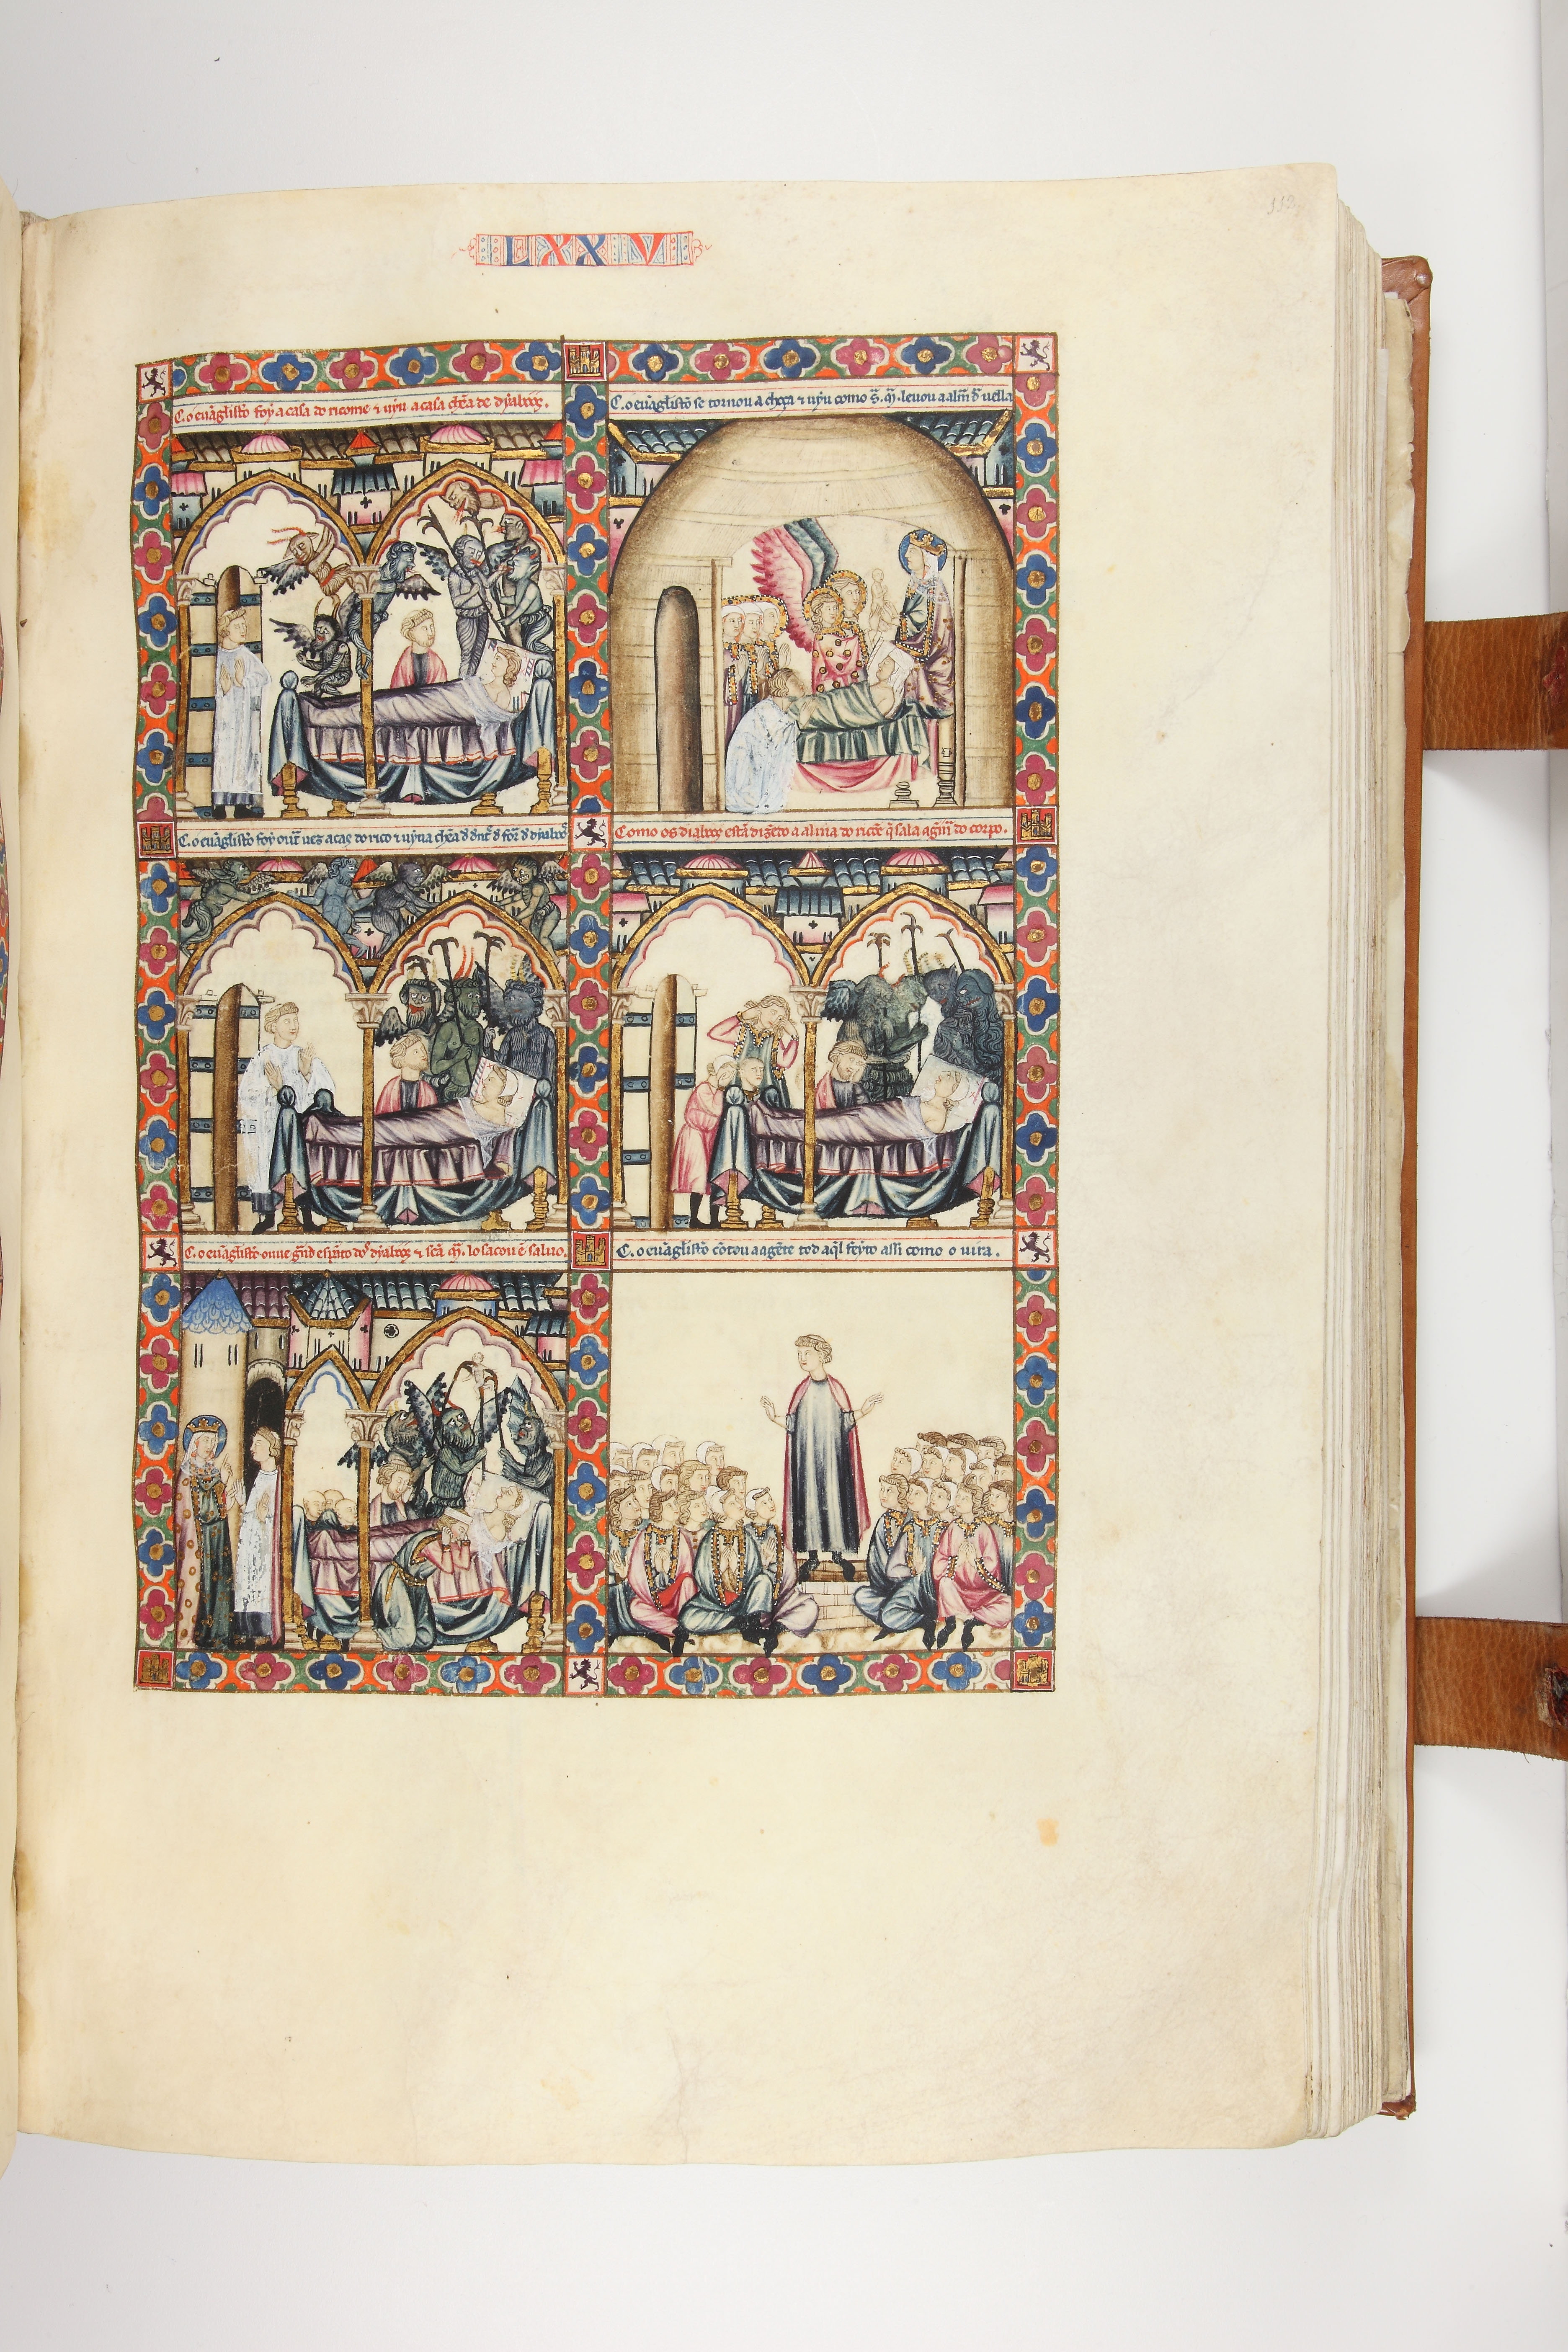 113
LXXV
C. o euãgelistõ foy a casa do ricome ⁊ uyu a casa chẽa de dyaboos.
C. o euãglistõ se tornou a choça ⁊ uyu como s̃. m̃. leuou a alm̃ d̃ uella
C. o euãglistõ foy out̃ uez a cas do rico ⁊ uyua chẽa d dent̃ d for̃ d dyaboos
Como os diaboos estã dizẽdo a alma do ricõ q̃ sala ag̃m̃ do corpo.
C. o euãglistõ ouue g̃nd espãto dos dyaboos ⁊ scã m̃. lo sacou ẽ saluo.
C. o euãglistõ cõtou a agẽte tod aq̃l feyto assi como o uira.